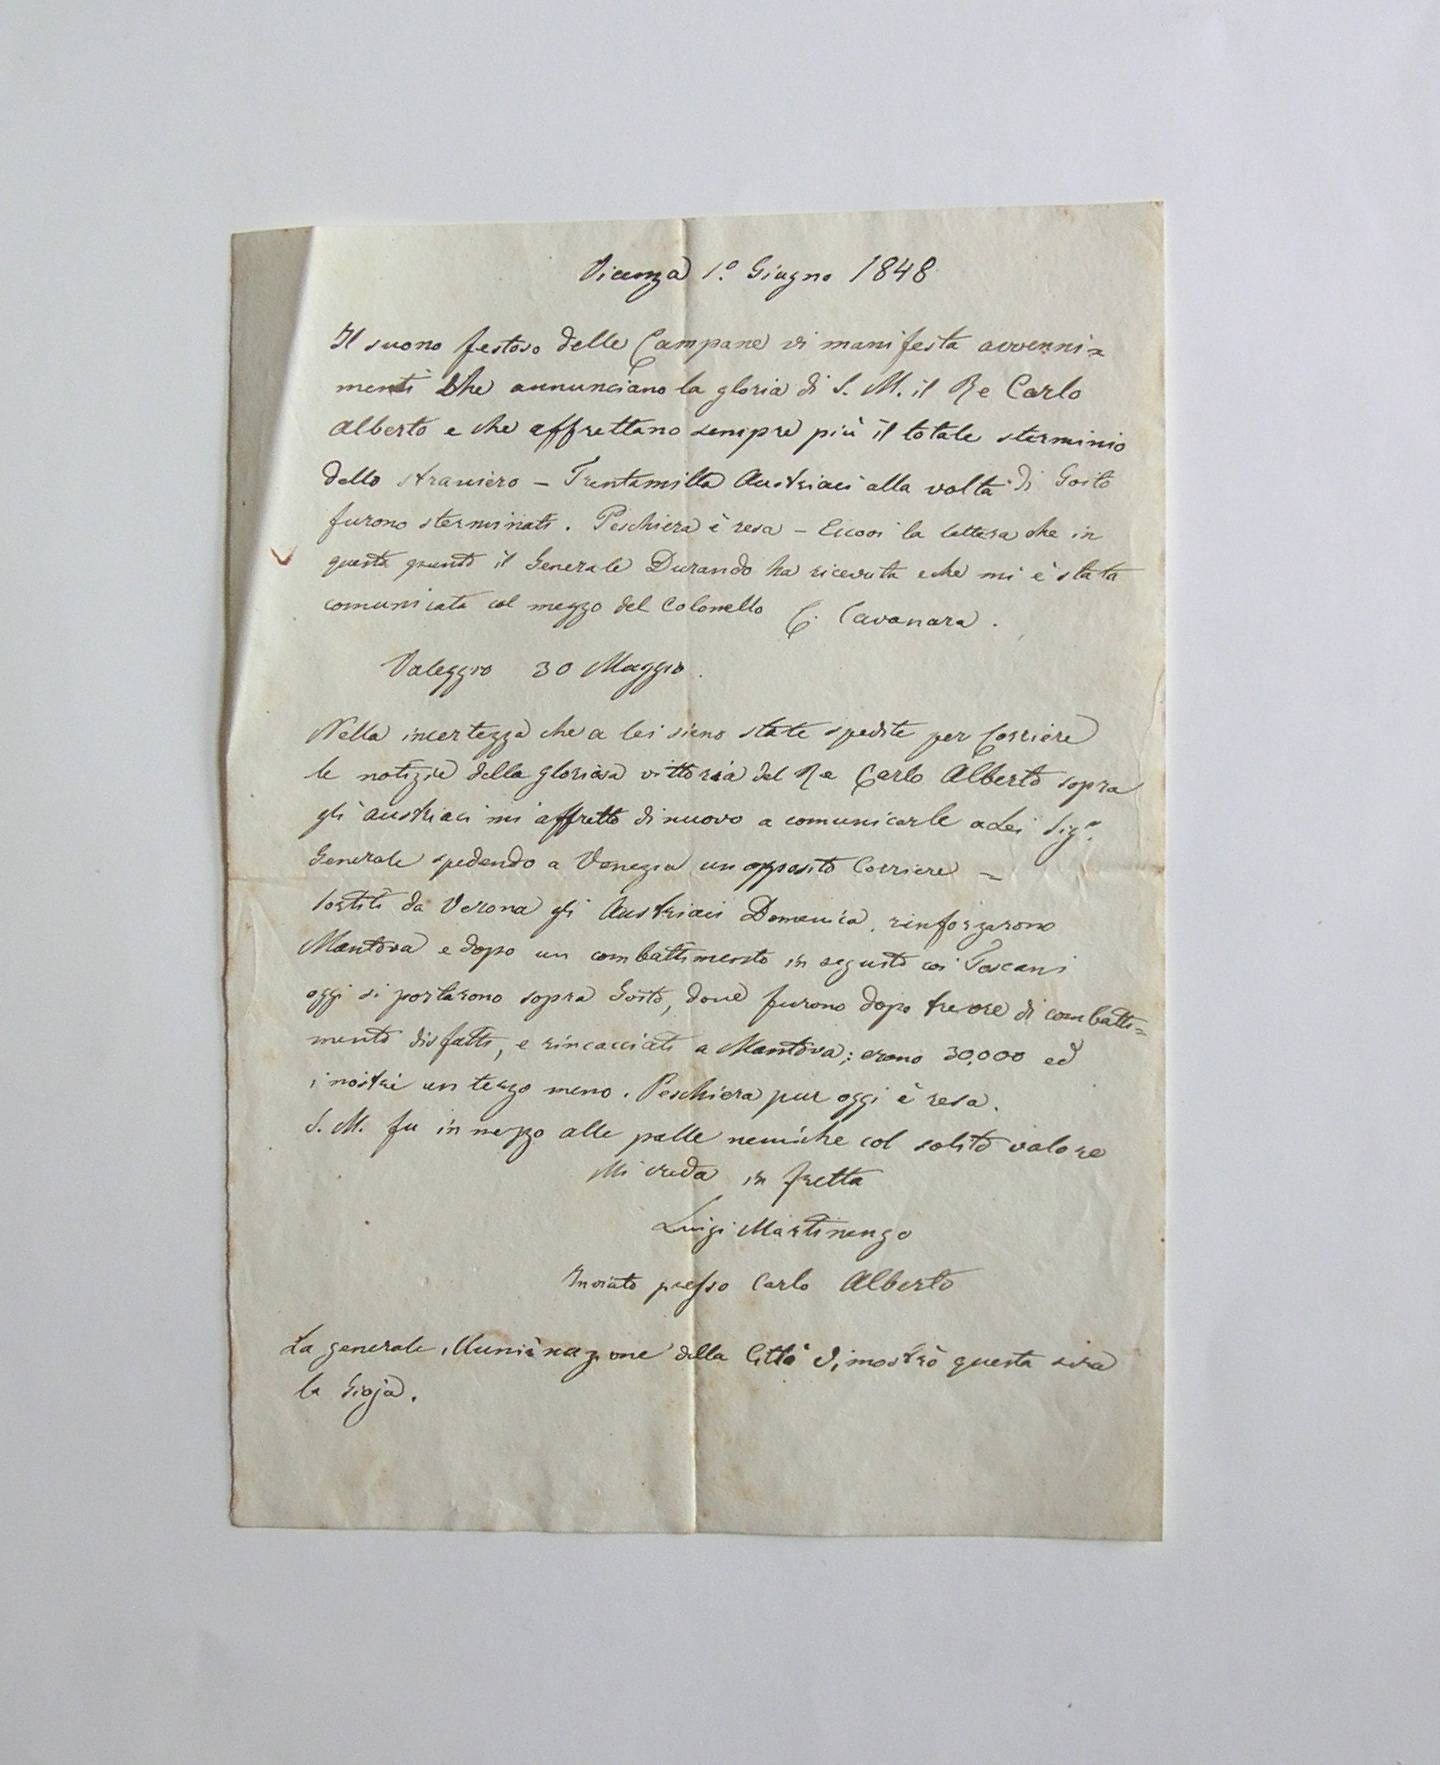 Vicenza 1.º Giugno 1848
Il suono festoso delle Campane vi manifesta avvenni=
menti che annunciano la gloria di S. M. il Re Carlo
Alberto e che affrettano sempre più il totale sterminio
dello straniero – Trentamilla Austriaci alla volta di Goito
furono sterminati. Peschiera è resa – Eccovi la lettera che in
questo punto il Generale Durando ha ricevuta e che mi è stata
comunicata col mezzo del Colonello C. Cavanara.
Valeggio 30 Maggio.
Nella incertezza che a lei sieno state spedite per Corriere
le notizie della gloriosa vittoria del Re Carlo Alberto sopra
gli austriaci mi affretto di nuovo a comunicarle a Lei Sigr.
Generale spedendo a Venezia un apposito Corriere –
Sortiti da Verona gli Austriaci Domenica, rinforzarono
Mantova e dopo un combattimento in seguito coi Toscani
oggi si portarono sopra Goito, dove furono dopo tre ore di combatti=
mento disfatti, e rincacciati a Mantova; erano 30,000 ed
i nostri un terzo meno. Peschiera pur oggi è resa.
S. M. fu in mezzo alle palle nemiche col solito valore
Mi creda in fretta
Luigi Martinengo
Inviato presso Carlo Alberto
La generale illuminazione della Città dimostrò questa sera
la Gioja.